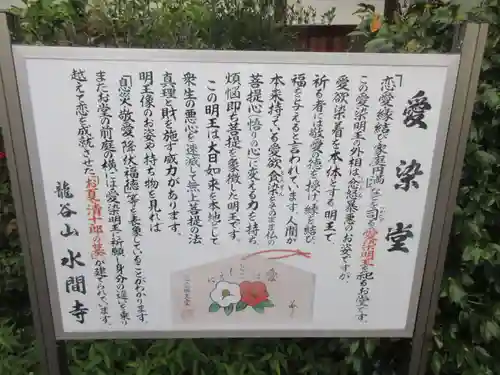 愛染堂
「恋愛・縁結び・家庭円満」などを司る愛染明王を祀るお堂です。
この愛染明王の外相は忿怒暴悪のお姿ですが、
愛欲染着を本体とする明王で、
祈る者には敬愛の徳を授け、縁を結び
福を与えると言われています。人間が
本来持っている愛欲貪染をそのまま仏の
菩提心(悟りの心)に変える力を持ち、
煩悩即ち菩提を象徴した明王です。
この明王は大日如来を本地として
衆生の悪心を速滅して無上菩提の法
真理と財を施す威力があります。
明王像のお姿や持ち物を見れば
「息災・敬愛・降伏・福徳」等を表象していることがわかります。
またお堂の前庭の横には愛染明王に祈願し身分の違いを乗り
越えて恋を成就させた「お夏・清十郎の墓」が建てられています。
龍谷山 水間寺